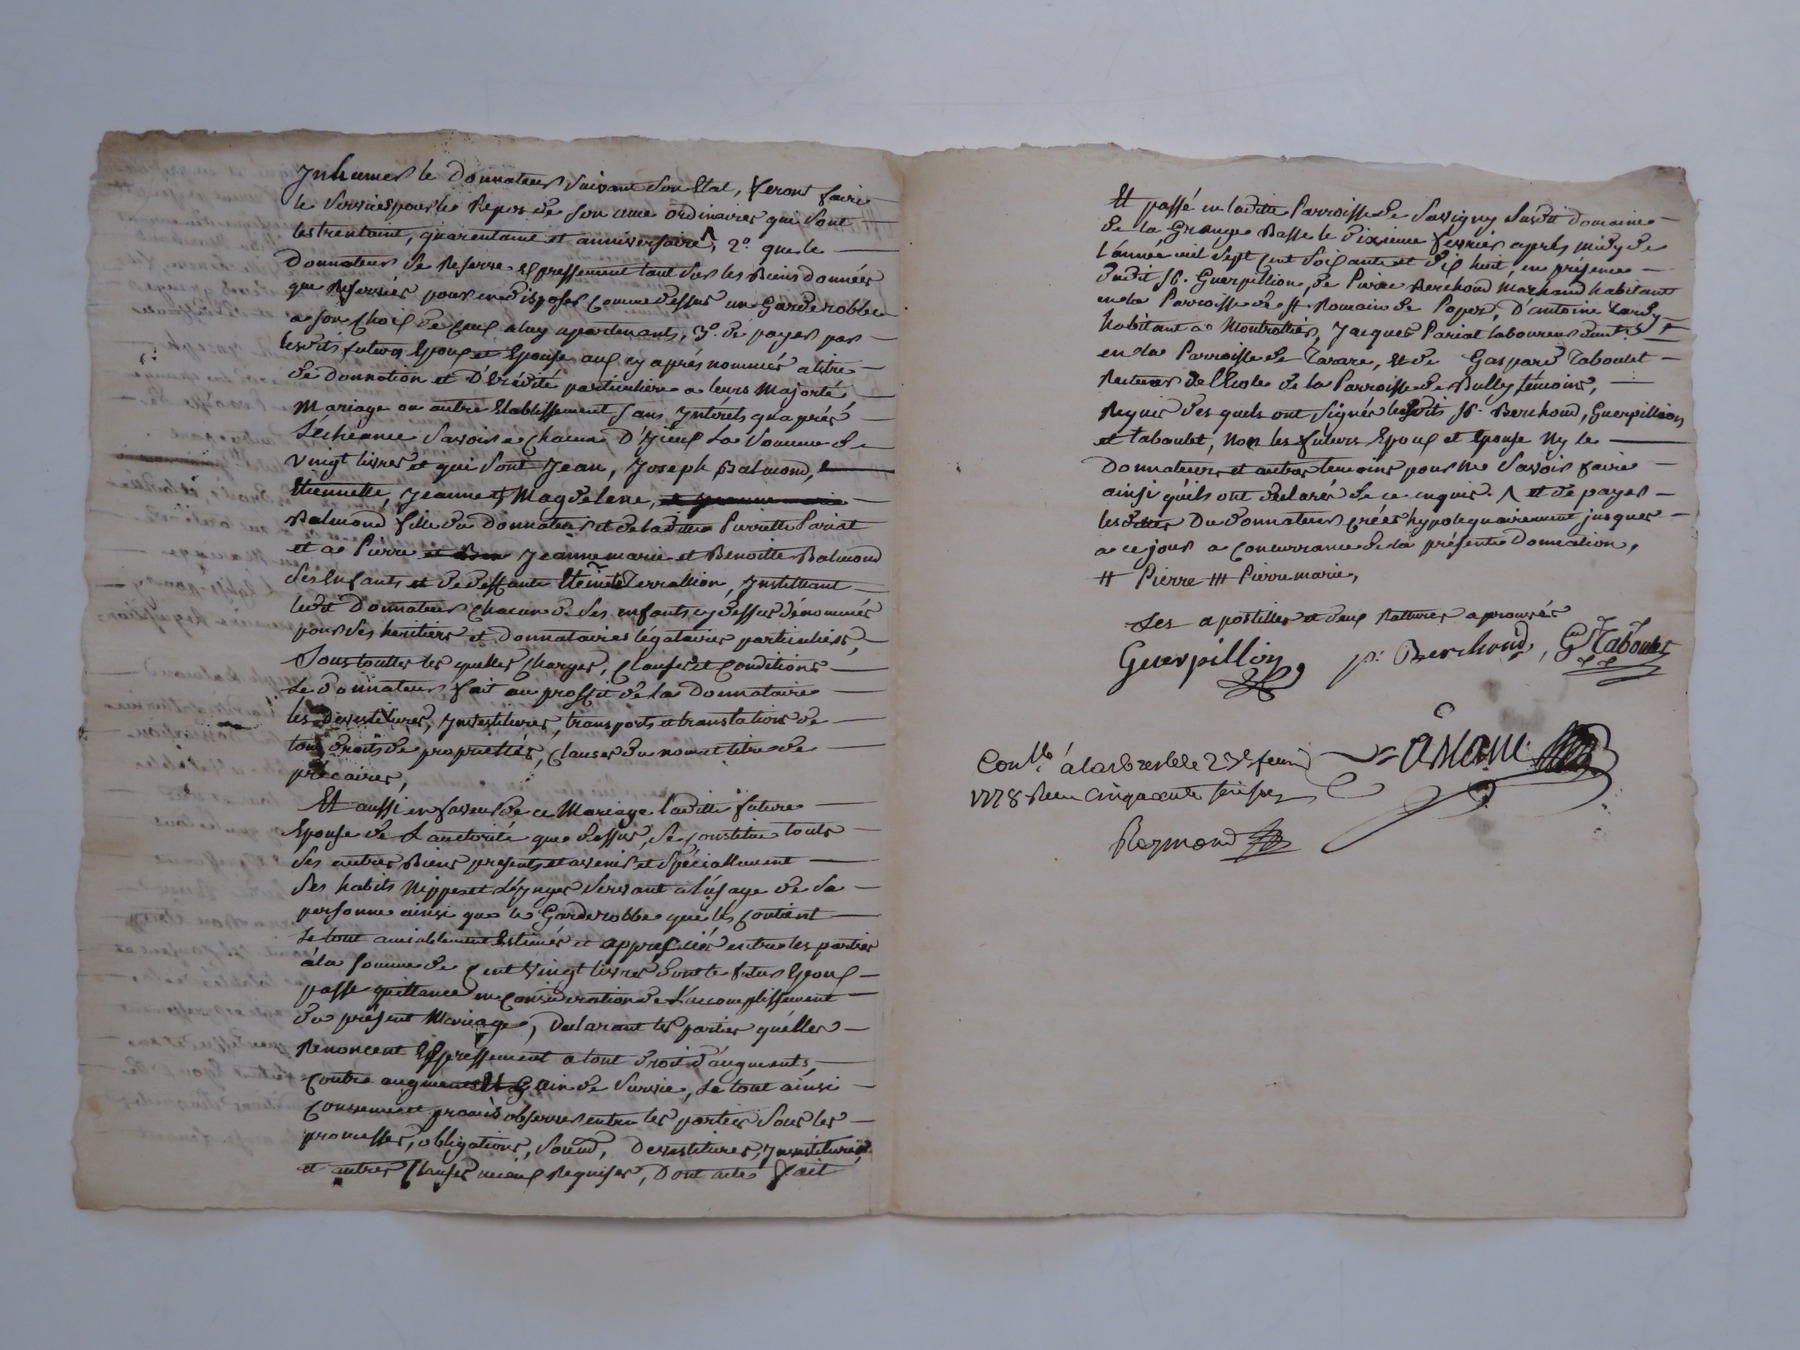 Inhumer le Donnateur suivant son Etat, feront faire
le services pour le Repos de son ame ordinaires qui sont
les trentaine, quarentaine et anniversaire, 2.° que le
Donnateur se Reserve expressement tant sur les Biens donnés
que Reservées pour en disposer comme dessus un Garderobbe
a son choix de ceux a luy apartenant, 3.° de payer par
lesdits futurs Epoux et Epouse aux cy aprés nommés a titre
de Donnation et D'hérédité particuliere a leurs Majorté
Mariage ou autre Etablissement sans Intérets qu'aprés
L'écheance Savoir a chacun D'Iceux La Somme de
vingt livres et qui sont Jean, Joseph Balmond,
Etiennette, Jeanne et Magdelene, et jeanne marie
Balmond fille du Donnateur et de ladite Pierrette Pariat
et a Pierre Jeanne marie et Benoitte Balmond
ses Enfants et de deffunte Etiennette Terraillion, Instituant
ledit Donnateur chacun de ses enfants cy dessus dénommés
pour ses heritiers et Donnataires légataires particuliers,
Sous touttes les quelles charges, clauses et conditions
Le donnateur fait au proffit de la Donnataire
les Devestitures, Investitures, transports et translations de
tous droits de proprietés, clauses du nom et titre de
précaires,
Et aussi en faveur de ce Mariage ladite future
Epouse de L'auctorité que dessus, se constitue touts
ses autres Biens presents et avenir et Spéciallement
ses habits Nippes et Linges servant a l'usage de sa
personne ainsi que le Garderobbe qui les contient
Le tout amiablement Estimés et appreciés entre les parties
à la somme de cent vingt livres dont le futur Epoux
passe quittance en considération de L'accomplissement
du présent Mariage, Declarant les parties qu'elles
Renoncent Expressement a tout droit d'augments,
contre augment et Gain de Survie, Le tout ainsi
convenu et promis observer entre les parties Sous les
promesses, obligations, Soumd, Devestitures, Investitures
et autres Clauses mieux Requises, Dont acte fait
Et passé en ladite Parroisse de Savigny Susdit domaine
de la Grange Basse le dixieme fevrier aprés midy de
L'année mil Sept cent Soixante et dix huit, en présence
dudit Sr. Guerpillion, de Pierre Berchoud Marchand habitant
en la Parroisse de St. Romain de Popey, D'antoine Lardy
habitant a Montrottier, Jacques Pariat laboureur
en la Parroisse de Tarare, et de Gaspard Taboulet
Recteur de l'Ecole de la Parroisse de Bully témoins,
Requis des quels ont signés lesdits Sr. Berchoud, Guerpillion
et Taboulet, Non les futurs Epoux et Epouse Ny le
Donnateur et autres temoins pour Ne Savoir faire
ainsi qu'ils ont declarés de ce enquis. et de payer
les dettes Du donnateur créés hypotequairement jusques
a ce jour a concurrance de la présente Donnation,
# Pierre ⧻ Pierre marie,
Les apostilles et deux Ratturés aprouvés
Guerpillion P. Berchoud, G. Taboulet
Con.lé à larbresle le 23 fevrier
1778 Reçu Cinquante
Raymond